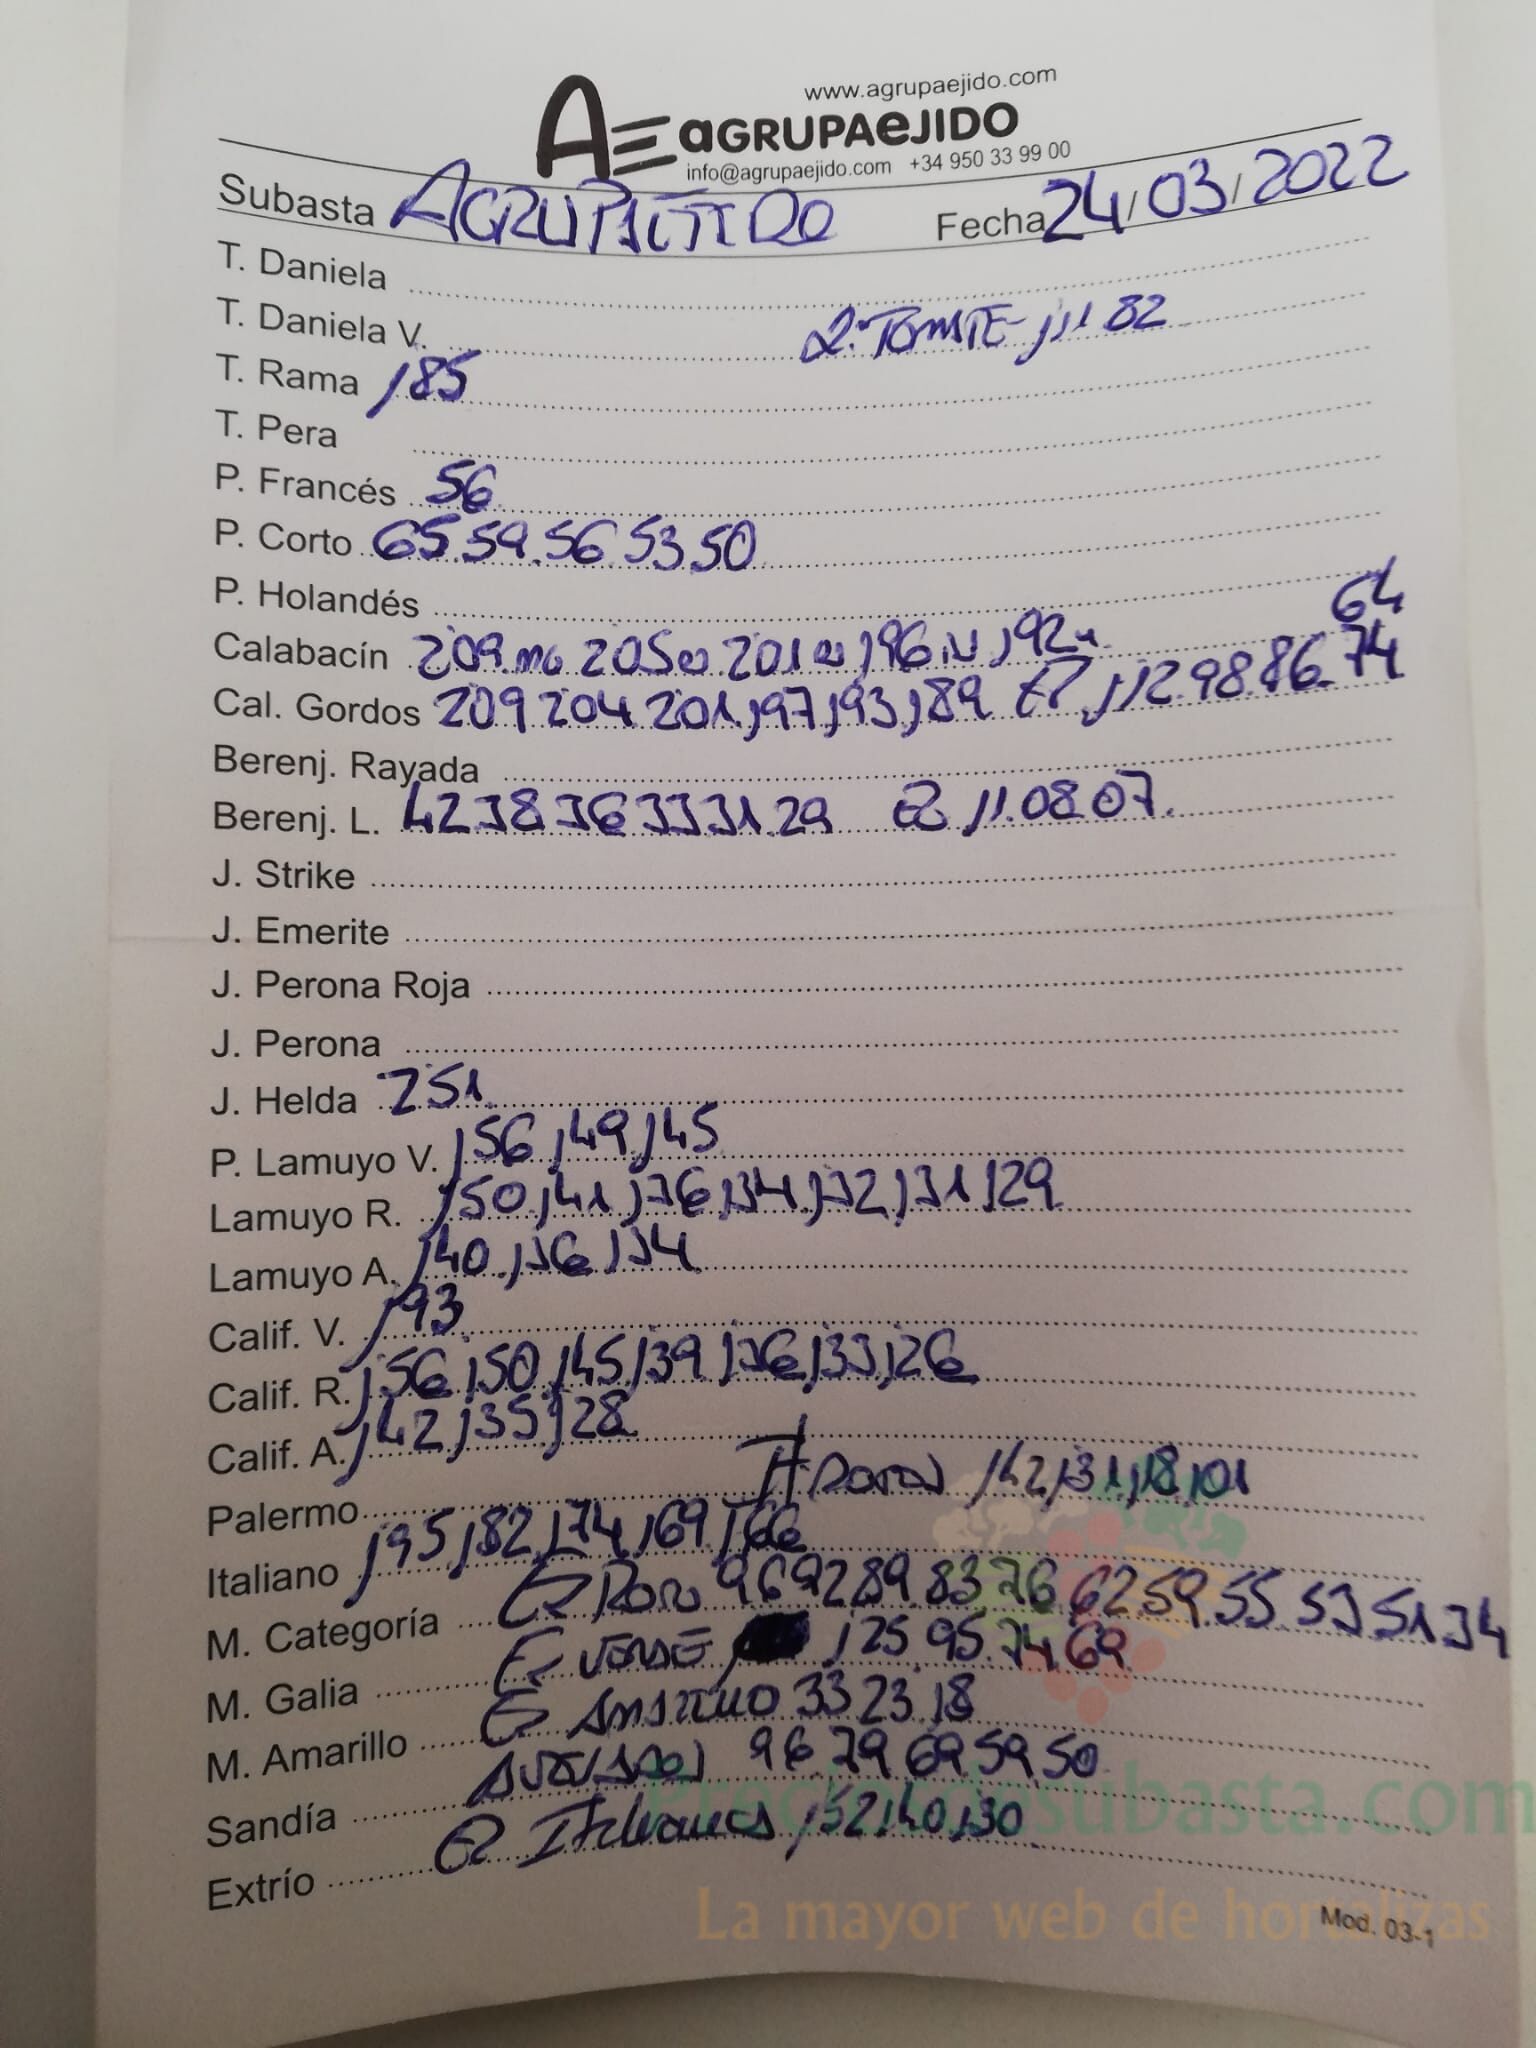 www.agrupaejido.com
AE aGRUPAeJIDO
info@agrupaejido.com +34 950 33 99 00
Subasta AGRUPAEJIDO Fecha 24/03/2022
T. Daniela
T. Daniela V. 2ª TOMATE 111 82
T. Rama 185
T. Pera
P. Francés 56
P. Corto 65.59.56.53.50
P. Holandés
64
Calabacín 209 205 201 196 192
Cal. Gordos 209 204 201,197,193,189 112.98.86.74
Berenj. Rayada
Berenj. L. 42 38 36 33 31 29 11.08.07.
J. Strike
J. Emerite
J. Perona Roja
J. Perona
J. Helda 251
P. Lamuyo V. 156,149,145
Lamuyo R. 150,141,136,134,132,131,129
Lamuyo A. 140,136,134
Calif. V. 193
Calif. R. 156,150,145,139,136,133,126
Calif. A. 142,135,128
Palermo 142,131,118,101
Italiano 195,182,174,169,166
M. Categoría 96 92 89.83 76 62.59.55.53 51 34
M. Galia VERDE 125.95.74.69
M. Amarillo AMARILLO 33 23.18
Sandía 96.79 69 59.50
Extrío Italianos 152,140,130
Preciosdesubasta.com
La mayor web de hortalizas
Mod. 03-1